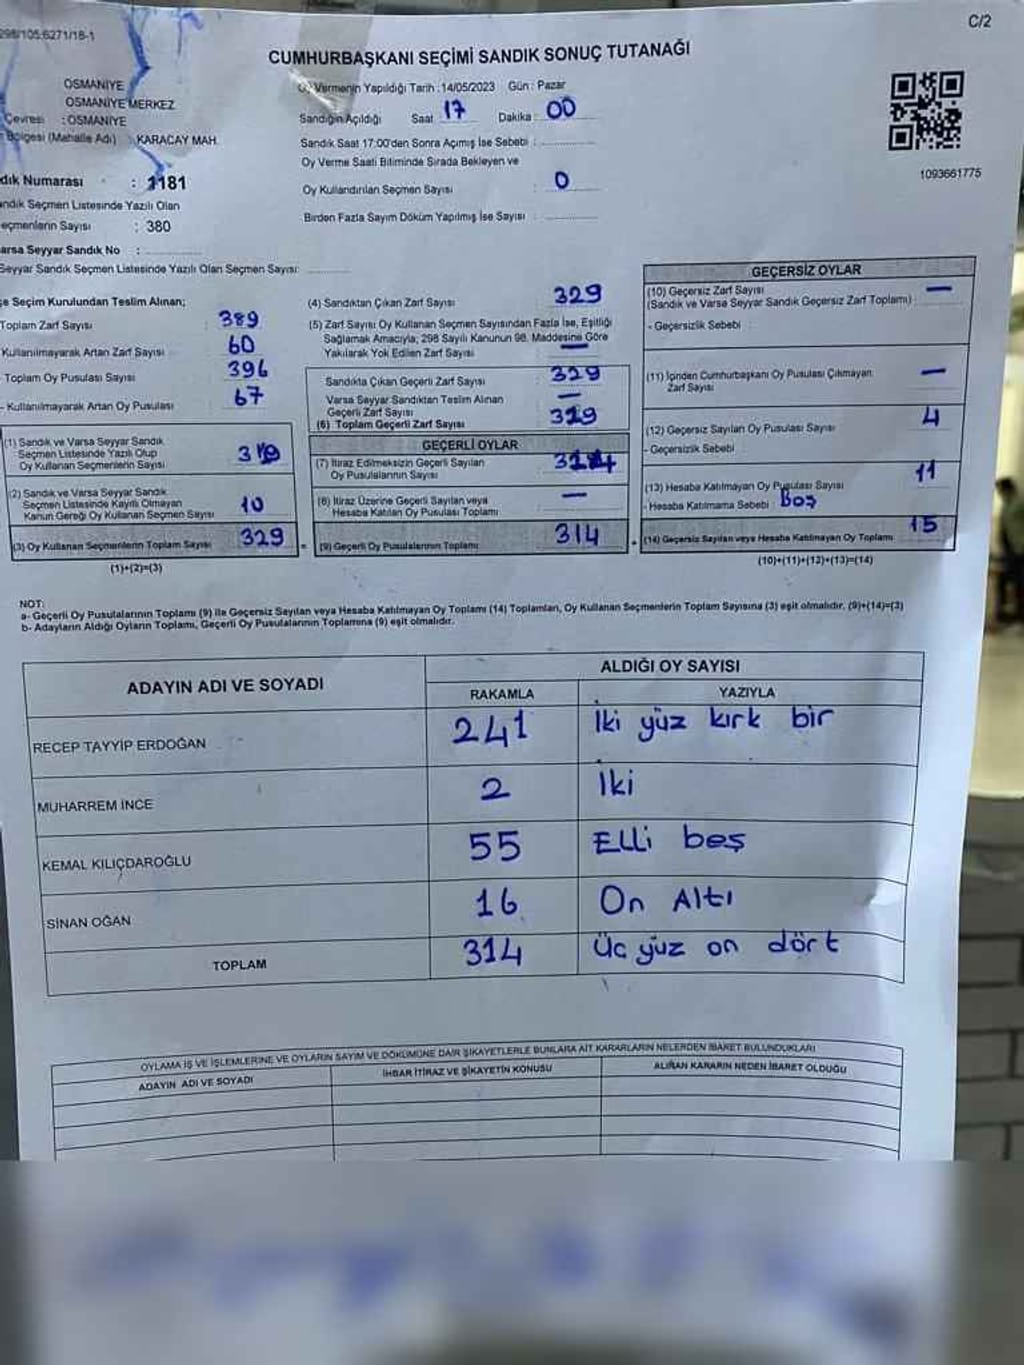 298/105.6271/18-1
C/2
CUMHURBAŞKANI SEÇİMİ SANDIK SONUÇ TUTANAĞI
OSMANİYE
OSMANİYE MERKEZ
Çevresi : OSMANİYE
Bölgesi (Mahalle Adı) : KARACAY MAH.
dık Numarası : 1181
andık Seçmen Listesinde Yazılı Olan
eçmenlerin Sayısı : 380
arsa Seyyar Sandık No :
Seyyar Sandık Seçmen Listesinde Yazılı Olan Seçmen Sayısı:
Vermenin Yapıldığı Tarih :14/05/2023 Gün : Pazar
Sandığın Açıldığı Saat 17 Dakika : 00
Sandık Saat 17:00'den Sonra Açımış İse Sebebi :
Oy Verme Saati Bitiminde Sırada Bekleyen ve
Oy Kullandırılan Seçmen Sayısı : 0
Birden Fazla Sayım Döküm Yapılmış İse Sayısı :
1093661775
e Seçim Kurulundan Teslim Alınan;
Toplam Zarf Sayısı 389
Kullanılmayarak Artan Zarf Sayısı 60
- Toplam Oy Pusulası Sayısı 396
- Kullanılmayarak Artan Oy Pusulası 67
(1) Sandık ve Varsa Seyyar Sandık
Seçmen Listesinde Yazılı Olup
Oy Kullanan Seçmenlerin Sayısı 319
(2) Sandık ve Varsa Seyyar Sandık
Seçmen Listesinde Kayıtlı Olmayan
Kanun Gereği Oy Kullanan Seçmen Sayısı 10
(3) Oy Kullanan Seçmenlerin Toplam Sayısı 329
(1)+(2)=(3)
(4) Sandıktan Çıkan Zarf Sayısı 329
(5) Zarf Sayısı Oy Kullanan Seçmen Sayısından Fazla İse, Eşitliği
Sağlamak Amacıyla; 298 Sayılı Kanunun 98. Maddesine Göre
Yakılarak Yok Edilen Zarf Sayısı —
Sandıkta Çıkan Geçerli Zarf Sayısı 329
Varsa Seyyar Sandıktan Teslim Alınan
Geçerli Zarf Sayısı —
(6) Toplam Geçerli Zarf Sayısı 329
GEÇERLİ OYLAR
(7) İtiraz Edilmeksizin Geçerli Sayılan
Oy Pusulalarının Sayısı 314
(8) İtiraz Üzerine Geçerli Sayılan veya
Hesaba Katılan Oy Pusulası Toplamı —
= (9) Geçerli Oy Pusulalarının Toplamı 314
GEÇERSİZ OYLAR
(10) Geçersiz Zarf Sayısı —
(Sandık ve Varsa Seyyar Sandık Geçersiz Zarf Toplamı) :
- Geçersizlik Sebebi
(11) İçinden Cumhurbaşkanı Oy Pusulası Çıkmayan —
Zarf Sayısı
(12) Geçersiz Sayılan Oy Pusulası Sayısı 4
- Geçersizlik Sebebi
(13) Hesaba Katılmayan Oy Pusulası Sayısı 11
- Hesaba Katılmama Sebebi Boş
+ (14) Geçersiz Sayılan veya Hesaba Katılmayan Oy Toplamı 15
(10)+(11)+(12)+(13)=(14)
NOT:
a- Geçerli Oy Pusulalarının Toplamı (9) ile Geçersiz Sayılan veya Hesaba Katılmayan Oy Toplamı (14) Toplamları, Oy Kullanan Seçmenlerin Toplam Sayısına (3) eşit olmalıdır. (9)+(14)=(3)
b- Adayların Aldığı Oyların Toplamı, Geçerli Oy Pusulalarının Toplamına (9) eşit olmalıdır.
ADAYIN ADI VE SOYADI ALDIĞI OY SAYISI
RAKAMLA YAZIYLA
RECEP TAYYİP ERDOĞAN 241 İki yüz kırk bir
MUHARREM İNCE 2 İki
KEMAL KILIÇDAROĞLU 55 Elli beş
SİNAN OĞAN 16 On Altı
TOPLAM 314 Üç yüz on dört
OYLAMA İŞ VE İŞLEMLERİNE VE OYLARIN SAYIM VE DÖKÜMÜNE DAİR ŞİKAYETLERLE BUNLARA AİT KARARLARIN NELERDEN İBARET BULUNDUKLARI
ADAYIN ADI VE SOYADI İHBAR İTİRAZ VE ŞİKAYETİN KONUSU ALINAN KARARIN NEDEN İBARET OLDUĞU